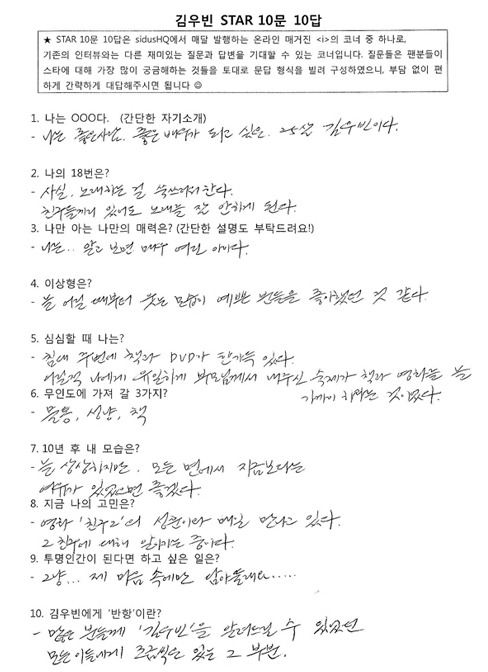 김우빈 STAR 10문 10답
★ STAR 10문 10답은 sidusHQ에서 매달 발행하는 온라인 매거진 <i>의 코너 중 하나로,
기존의 인터뷰와는 다른 재미있는 질문과 답변을 기대할 수 있는 코너입니다. 질문들은 팬분들이
스타에 대해 가장 많이 궁금해하는 것들을 토대로 문답 형식을 빌려 구성하였으니, 부담 없이 편
하게 간략하게 대답해주시면 됩니다 ☺
1. 나는 OOO다. (간단한 자기소개)
- 나는 좋은사람, 좋은 배우가 되고 싶은. 25살 김우빈이다.
2. 나의 18번은?
- 사실, 노래하는 걸 쑥쓰러워한다.
친구들끼리 있어도 노래를 잘 안하게 된다.
3. 나만 아는 나만의 매력은? (간단한 설명도 부탁드려요!)
- 나는.. 알고 보면 매우 여린 아이다.
4. 이상형은?
- 늘 어릴 때부터 웃는 모습이 예쁜 분들을 좋아했던 것 같다.
5. 심심할 때 나는?
- 침대 주변에 책과 DVD가 한가득 있다.
어릴적 나에게 유일하게 부모님께서 내주신 숙제가 책과 영화를 늘
가까이 하라는 것이었다.
6. 무인도에 가져 갈 3가지?
- 물통, 성냥, 책
7. 10년 후 내 모습은?
- 늘 상상하지만. 모든 면에서 지금보다는
여유가 있었으면 좋겠다.
8. 지금 나의 고민은?
- 영화 '친구2'의 성훈이와 매일 만나고 있다.
그 친구에 대해 알아가는 중이다.
9. 투명인간이 된다면 하고 싶은 일은?
- 그냥... 제 마음 속에만 담아둘래요.....
10. 김우빈에게 '반항'이란?
- 많은 분들께 '김우빈'을 알려드릴 수 있었던
모든 이들에게 조금씩은 있는 그 부분.